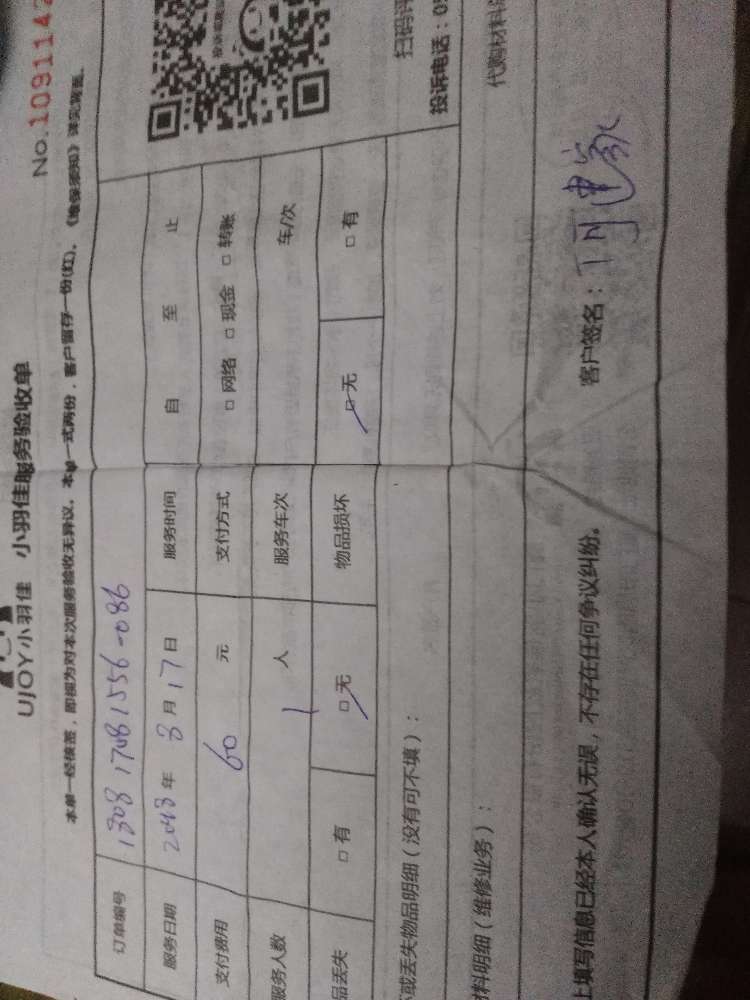 No.1091142
UJOY小羽佳 小羽佳服务验收单
本单一经核签,即视为对本次服务验收无异议。本单一式两份,客户留存一份(红)。《维保须知》详见背面。
订单编号
服务日期 年 8月17日 服务时间 自 至 止
支付费用 60 元 支付方式 □网络 □现金 □转账
服务人数 1 人 服务车次 车/次
品丢失 □有 □无 物品损坏 □无 □有
或丢失物品明细(没有可不填):
扫码评
投诉电话:05
料明细(维修业务):
代购材料
上填写信息已经本人确认无误,不存在任何争议纠纷。
客户签名: